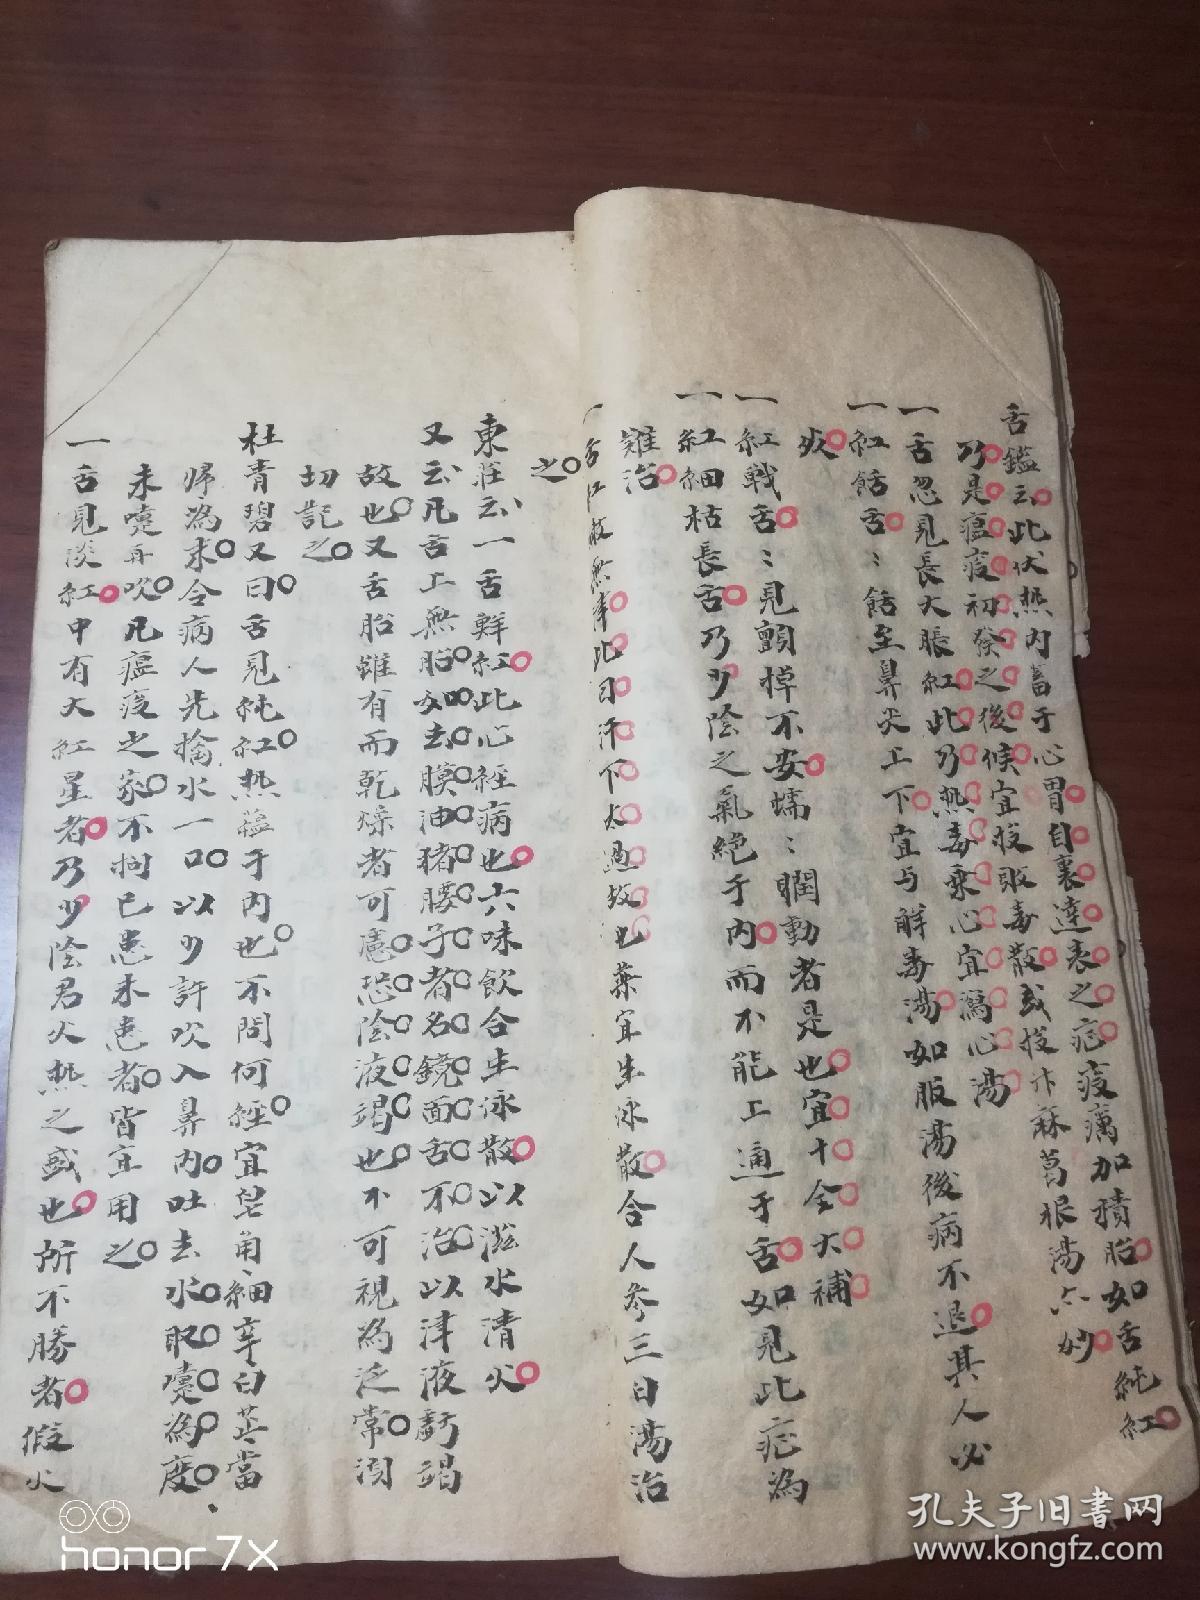 舌鑑云此伏热内畜于心胃自裏達表之症疫癘加積胎如舌純紅
乃是瘟疫初發之後候宜投敗毒散或投汴麻葛根湯六妙
一舌忽見長大脹紅此乃热毒乗心宜瀉心湯
一紅餂舌﹕餂至鼻尖上下宜与解毒湯如服湯後病不退其人必
炏
一紅戰舌﹕見顫掉不安蠕﹕瞤動者是也宜十全大補
一紅細枯長舌乃少陰之氣絶于内而不能工通于舌如見此症為
難治
一舌紅散無津此因汗下太過故也葉宜生泳散合人參三白湯治
之
東莊云一舌鮮紅此心経病也六味飲合生泳散以滋水清火
又云凡舌上無胎如去膜油猪腰子者名鏡面舌不治以津液虧竭
故也又舌胎雖有而乾燥者可慮恐陰液竭也不可視為泛常
切記之
杜青碧又曰舌見純紅热藴于内也不問何經宜皂角細辛白芷當
帰為末令病人先擒水一口以少許吹入鼻内吐去水取嚏為度
未嚏再吹凡瘟疫之家不拘已患未患者皆宜用之
一舌見淡紅中有大紅星者乃少陰君火热之盛也所不勝者假火
honor 7X
孔夫子旧書网
www.kongfz.com